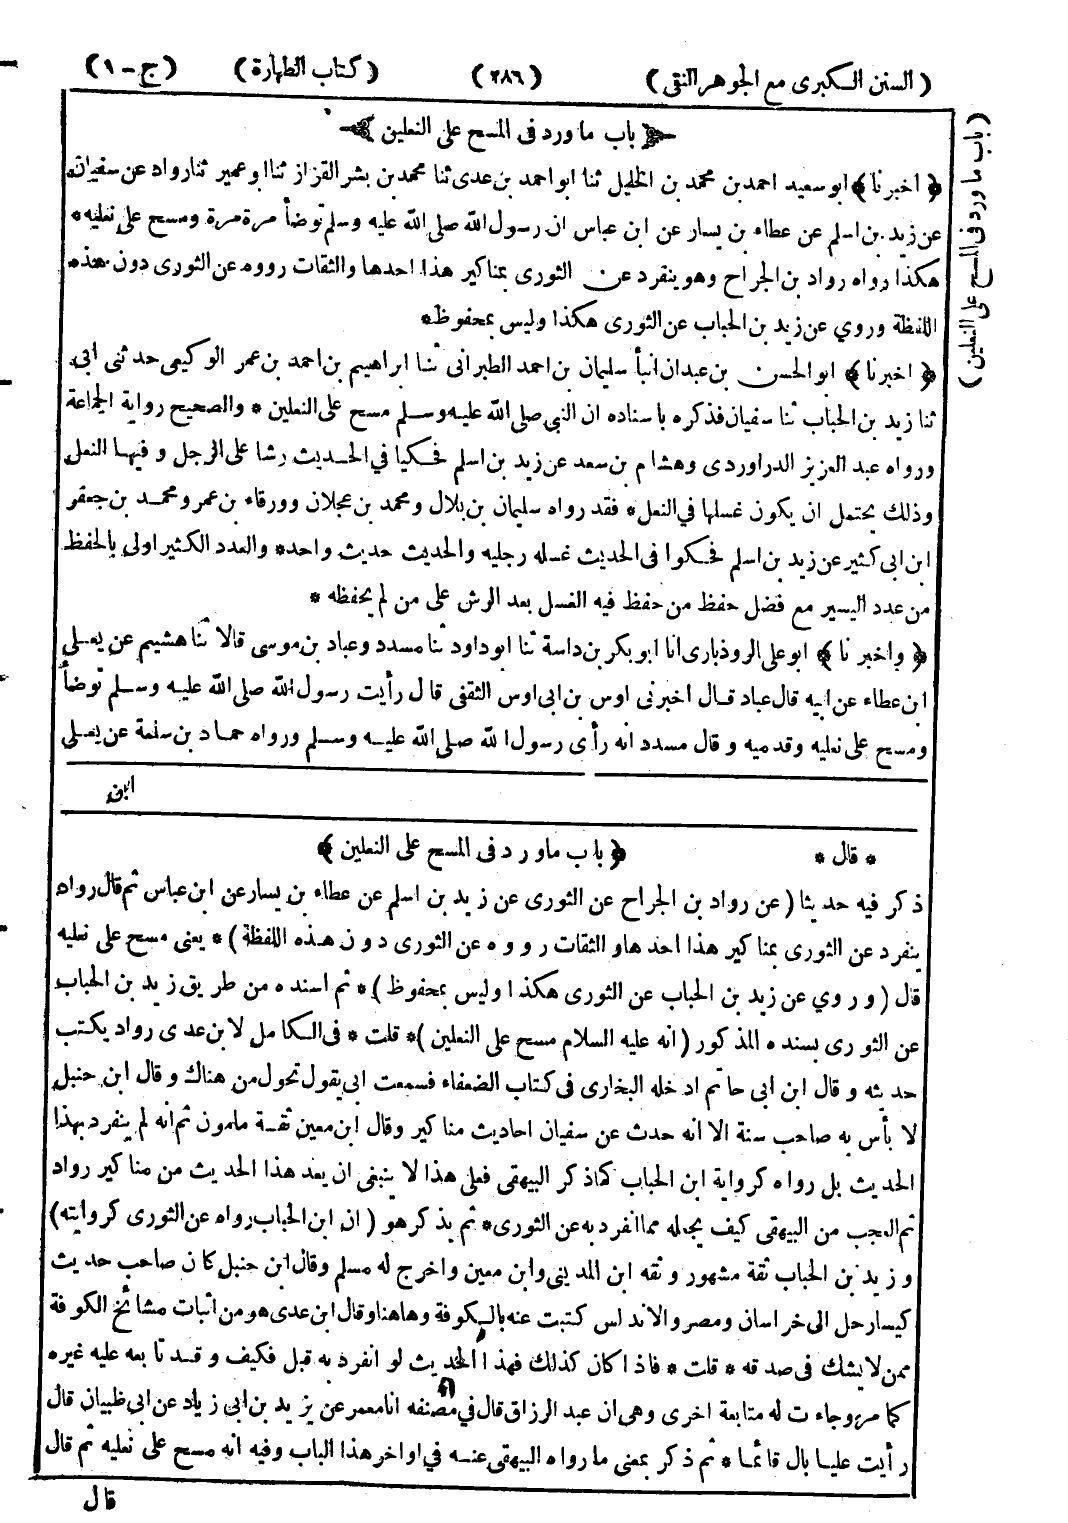 ( السنن الكبرى مع الجوهر النقى ) ( ٢٨٦ ) ( كتاب الطهارة ) ( ج - ١ )
( باب ما ورد فى المسح على النعلين )
باب ما ورد فى المسح على النعلين
﴿ اخبرنا ﴾ ابو سعيد احمد بن محمد بن الخليل ثنا ابو احمد بن عدى ثنا محمد بن بشر القزاز ثنا ابو عمير ثنا رواد عن سفيان
عن زيد بن اسلم عن عطاء بن يسار عن ابن عباس ان رسول الله صلى الله عليه وسلم توضأ مرة مرة ومسح على نعليه *
هكذا رواه رواد بن الجراح وهو ينفرد عن الثورى بمناكير هذا احدها والثقات رووه عن الثورى دون هذه
اللفظة وروي عن زيد بن الحباب عن الثورى هكذا وليس بمحفوظ *
﴿ اخبرنا ﴾ ابو الحسن بن عبدان انبأ سليمان بن احمد الطبرانى ثنا ابراهيم بن احمد بن عمر الوكيعى حدثنى ابى
ثنا زيد بن الحباب ثنا سفيان فذكره باسناده ان النبى صلى الله عليه وسلم مسح على النعلين * والصحيح رواية الجماعة
ورواه عبد العزيز الدراوردى وهشام بن سعد عن زيد بن اسلم فحكيا في الحديث رشا على الرجل و فيها النعل
وذلك يحتمل ان يكون غسلها في النعل * فقد رواه سليمان بن بلال ومحمد بن عجلان وورقاء بن عمر ومحمد بن جعفر
ابن ابى كثير عن زيد بن اسلم فحكوا فى الحديث غسله رجليه والحديث حديث واحد * والعدد الكثير اولى بالحفظ
من عدد اليسير مع فضل حفظ من حفظ فيه الغسل بعد الرش على من لم يحفظه *
﴿ واخبرنا ﴾ ابو على الروذبارى انا ابو بكر بن داسة ثنا ابو داود ثنا مسدد وعباد بن موسى قالا ثنا هشيم عن يعلى
ابن عطاء عن ابيه قال عباد قال اخبرنى اوس بن ابى اوس الثقفى قال رأيت رسول الله صلى الله عليه وسلم توضأ
ومسح على نعليه وقدميه و قال مسدد انه رأى رسول الله صلى الله عليه وسلم ورواه حماد بن سلمة عن يعلى
ابن
* قال * ﴿ باب ما ورد فى المسح على النعلين ﴾
ذكر فيه حديثا ( عن رواد بن الجراح عن الثورى عن زيد بن اسلم عن عطاء بن يسار عن ابن عباس ثم قال رواد
ينفرد عن الثورى بمناكير هذا احدها و الثقات رووه عن الثورى دون هذه اللفظة ) * يعنى مسح على نعليه
قال ( وروي عن زيد بن الحباب عن الثورى هكذا وليس بمحفوظ ) * ثم اسنده من طريق زيد بن الحباب
عن الثورى بسنده المذكور ( انه عليه السلام مسح على النعلين ) * قلت * فى الكامل لابن عدى رواد يكتب
حديثه و قال ابن ابى حاتم ادخله البخارى فى كتاب الضعفاء فسمعت ابى يقول تحول من هناك و قال ابن حنبل
لا بأس به صاحب سنة الا انه حدث عن سفيان احاديث مناكير وقال ابن معين ثقة مامون ثم انه لم ينفرد بهذا
الحديث بل رواه كرواية ابن الحباب كما ذكر البيهقى فعلى هذا لا ينبغى ان يعد هذا الحديث من مناكير رواد
ثم العجب من البيهقى كيف يجعله مما انفرد به عن الثورى * ثم يذكر هو ( ان ابن الحباب رواه عن الثورى كروايته )
و زيد بن الحباب ثقة مشهور وثقه ابن المدينى وابن معين واخرج له مسلم وقال ابن حنبل كان صاحب حديث
كيسا رحل الى خراسان ومصر والاندلس كتبت عنه بالكوفة وهاهنا وقال ابن عدى هو من اثبات مشائخ الكوفة
ممن لا يشك فى صدقه * قلت * فاذا كان كذلك فهذا الحديث لو انفرد به قبل فكيف و قد تابعه عليه غيره
كما مر وجاءت له متابعة اخرى وهى ان عبد الرزاق قال في مصنفه انا معمر عن يزيد بن ابى زياد عن ابى ظبيان قال
رأيت عليا بال قائما * ثم ذكر بمعنى ما رواه البيهقى عنه في اواخر هذا الباب وفيه انه مسح على نعليه ثم قال
قال